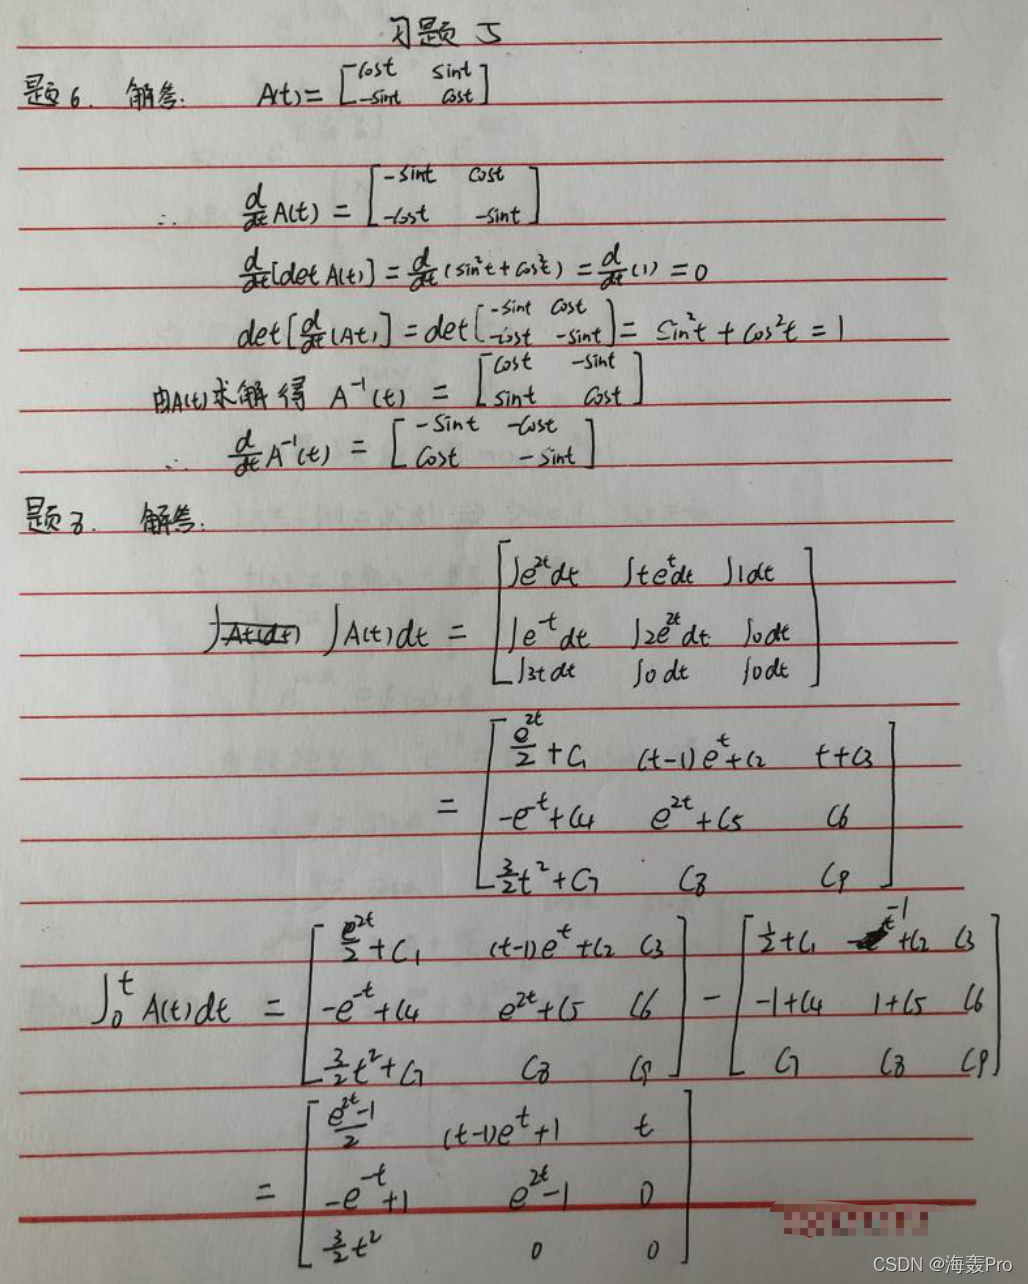 习题 5
题6. 解答: A(t) = [cost sint; -sint cost]
∴ d/dt A(t) = [-sint cost; -cost -sint]
d/dt[det A(t)] = d/dt(sin²t+cos²t) = d/dt(1) = 0
det[d/dt(At)] = det[-sint cost; -cost -sint] = sin²t + cos²t = 1
由A(t)求解得 A⁻¹(t) = [cost -sint; sint cost]
∴ d/dt A⁻¹(t) = [-sint -cost; cost -sint]
题8. 解答:
∫A(t)dt = [∫e^{2t}dt ∫te^{t}dt ∫1dt; ∫e^{-t}dt ∫2e^{2t}dt ∫0dt; ∫3tdt ∫0dt ∫0dt]
= [e^{2t}/2+C1 (t-1)e^{t}+C2 t+C3; -e^{-t}+C4 e^{2t}+C5 C6; 3/2t²+C7 C8 C9]
∫₀^t A(t)dt = [e^{2t}/2+C1 (t-1)e^{t}+C2 C3; -e^{-t}+C4 e^{2t}+C5 C6; 3/2t²+C7 C8 C9] - [1/2+C1 -1+C2 C3; -1+C4 1+C5 C6; C7 C8 C9]
= [(e^{2t}-1)/2 (t-1)e^{t}+1 t; -e^{-t}+1 e^{2t}-1 0; 3/2t² 0 0]
CSDN @海轰Pro